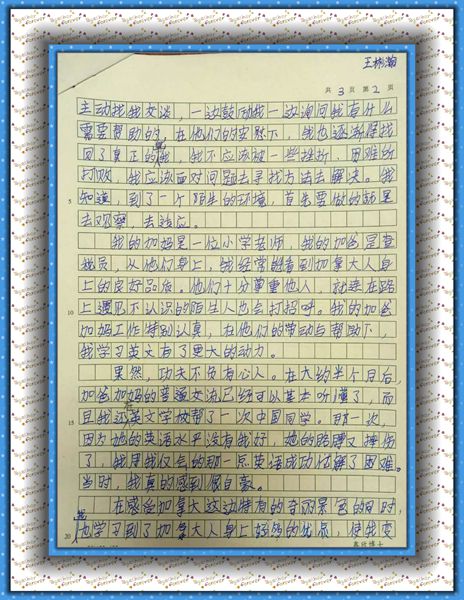 王彬瀚
共 3 页 第 2 页
主动找我交谈，一边鼓励我一边询问我有什么
需要帮助的，在他们的安慰下，我也逐渐保找
回了真正的我，我不应该被一些挫折、困难给
打败，我应该面对问题去寻找方法去解决。我
知道，到了一个陌生的环境，首先要做的就是
去观察，去适应。
我的加妈是一位小学老师，我的加爸是
员，从他们身上，我经常能看到加拿大人身
上的良好品质。他们十分尊重他人，就连在路
上遇见不认识的陌生人也会打招呼。我的加爸
加妈工作特别认真，在他们的带动与帮助下，
我学习英文有了更大的动力。
果然，功夫不负有心人。在大约半个月后，
加爸加妈的普通交流已经可以基本听懂了，而
且我还英文学校帮了一次中国同学。那一次，
因为她的英语水平没有我好，她的胳膊又摔伤
了，我用我仅会的那一点英语成功化解了困难。
当时，我真的感到很自豪。
在感悟加拿大这边特有的奇丽景色的同时，
我也学习到了加拿大人身上好多的优质，使我变
5
10
15
20